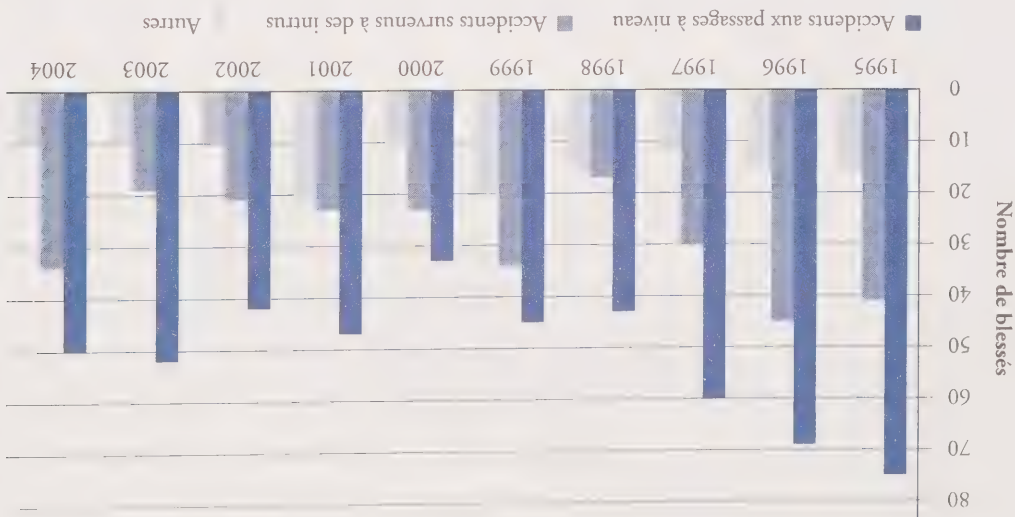 Nombre de blessés
80
70
60
50
40
30
20
10
0
1995 1996 1997 1998 1999 2000 2001 2002 2003 2004
Accidents aux passages à niveau Accidents survenus à des intrus Autres